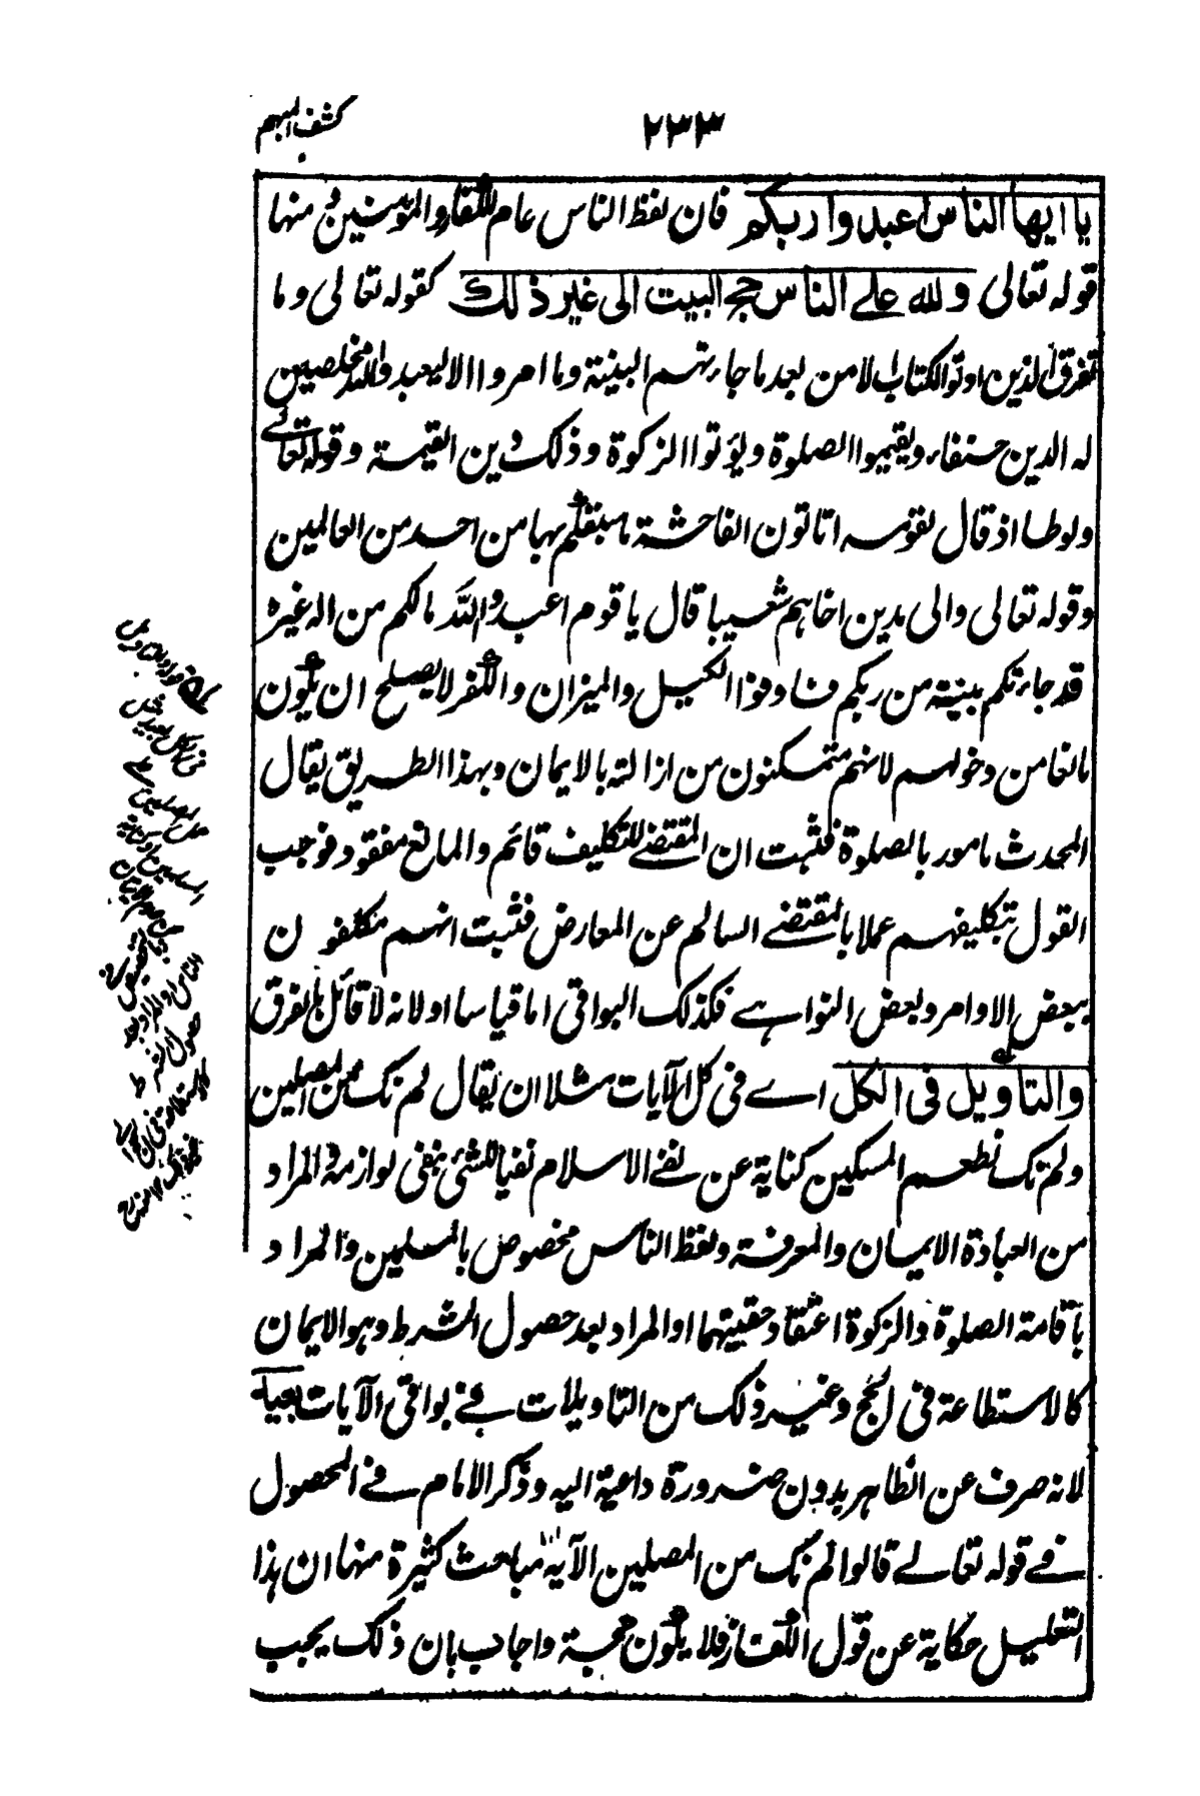 كشف المبهم
٢٣٣
يا ايها الناس اعبدوا ربكم فان لفظ الناس عام للكفار والمؤمنين ومنها
قوله تعالى ولله على الناس حج البيت الى غير ذلك كقوله تعالى وما
تفرق الذين اوتوا الكتاب الا من بعد ما جاءتهم البينة وما امروا الا ليعبدوا الله مخلصين
له الدين حنفاء ويقيموا الصلوة ويؤتوا الزكوة وذلك دين القيمة وقوله تعالے
ولوطا اذ قال لقومه اتاتون الفاحشة ما سبقكم بها من احد من العالمين
وقوله تعالى والى مدين اخاهم شعيبا قال يا قوم اعبدوا الله ما لكم من اله غيره
قد جاءتكم بينة من ربكم فاوفوا الكيل والميزان والكفر لا يصلح ان يكون
مانعا من دخولهم لانهم متمكنون من ازالته بالايمان وبهذا الطريق يقال
المحدث مامور بالصلوة فثبت ان المقتضے للتكليف قائم والمانع مفقود فوجب
القول بتكليفهم عملا بالمقتضے السالم عن المعارض فثبت انهم مكلفون
ببعض الاوامر وبعض النواهے فكذلك البواقى اما قياسا او لانه لا قائل بالفرق
والتاويل فى الكل اے فى كل الآيات مثلا ان يقال لم نك من المصلين
ولم نك نطعم المسكين كناية عن نفے الاسلام نفيا للشئ بنفى لوازمه والمراد
من العبادة الايمان والمعرفة ولفظ الناس مخصوص بالمسلمين والمراد
باقامة الصلوة والزكوة اعتقاد حقيتهما او المراد بعد حصول الشرط وهو الايمان
كالاستطاعة فى الحج وغير ذلك من التاويلات فے بواقى الآيات بعيد
لانه صرف عن الظاهر بدون ضرورة داعية اليه وذكر الامام فے المحصول
فے قوله تعالے قالوا لم نك من المصلين الآية مباحث كثيرة منها ان هذا
التعليل حكاية عن قول الكفار فلا يكون حجة واجاب بان ذلك يجب
قوله والتاويل